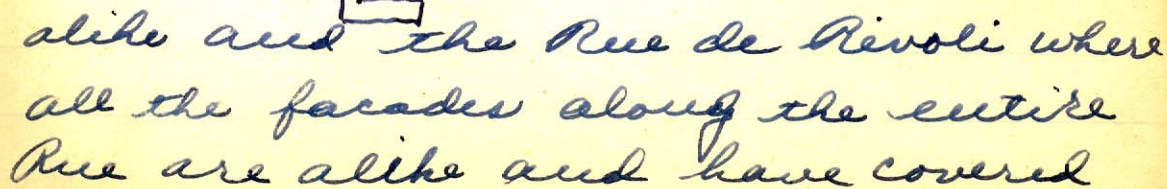 alike and the Rue de Rivoli where
all the facades along the entire
Rue are alike and have covered